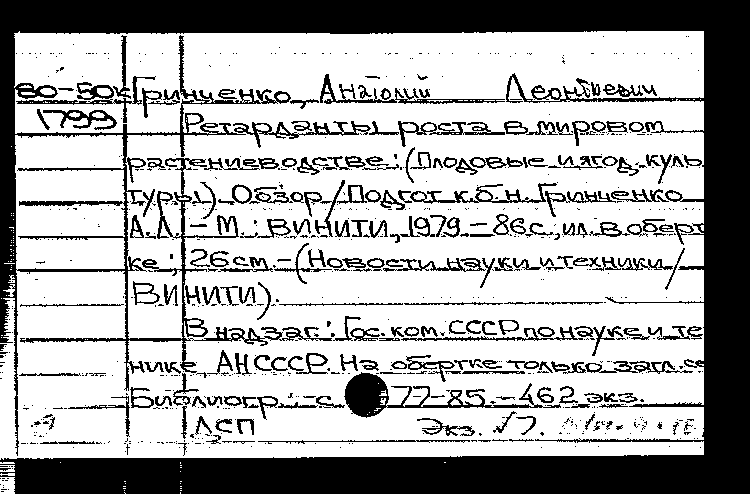 80-50к Гринченко, Анатолий Леонтьевич
1799 Ретарданты роста в мировом
растениеводстве: (Плодовые и ягод. куль
туры). Обзор / Подгот. к.б.н. Гринченко
А.Л. - М.: ВИНИТИ, 1979 - 86с., ил. В оберт
ке; 26 см. - (Новости науки и техники /
ВИНИТИ).
В надзаг.: Гос. ком. СССР по науке и те
нике, АН СССР. На обертке только загл. се
Библиогр.: с. 77-85. - 462 экз.
ДСП Экз. √7.